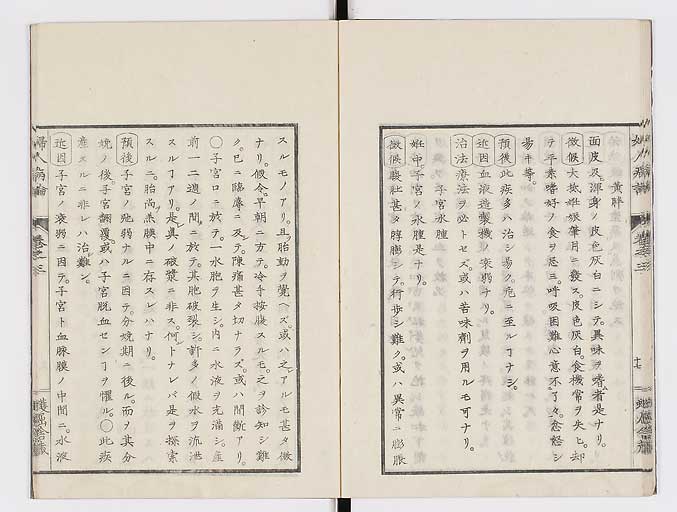 黄胖
面皮及渾身ノ皮色灰白ニシテ。異味ヲ嗜ム者是ナリ。
徴候大抵妊娠筆月ニ發ス。皮色灰白。食機常ヲ失ヒ。却
テ平素嗜好ノ食ヲ惡ミ。呼吸困難心意不了々。怠惰シ
預後此疾多ハ治シ易ク。危ニ至ル丁ナシ。
近因血液造製機ノ衰弱ナリ。
治法療法ヲ必トセズ。或ハ苦味劑ヲ用ルモ可ナリ。
子宮水腫
妊中。子宮ノ水腫是ナリ。
徴候腹肚甚タ膨脹シテ。行歩シ難ク。或ハ異常ニ膨脹
スルモノアリ。且胎動ヲ覺ヘズ。或ハ之アルモ甚タ微
ナリ。假令。早朝ニ方テ。冷手按腹スルモ。之ヲ診知シ難
ク。已ニ臨產ニ及テ。陣痛甚タ切ナラズ。或ハ間斷アリ。
〇子宮口ニ於テ。一水胞ヲ生シ。内ニ水液ヲ充滿シ。産
前一二週ノ間ニ於テ。其胞破裂シ。許多ノ似水ヲ流泄
スル丁アリ。是眞ノ破漿ニ非ス。何トナレバ是ヲ探索
スルニ。胎尚羔膜中ニ存スレハナリ。
預後子宮ノ弛弱ナルニ因テ。分娩期ニ後ル。而ヲ其分
娩ノ後子宮翻覆。或ハ子宮脱血セン丁ヲ懼ル。〇此疾
産スルニ非レハ治難シ。
近因子宮ノ衰弱ニ因テ。子宮ト血膝膜ノ中間ニ。水液
婦人病論
卷之三